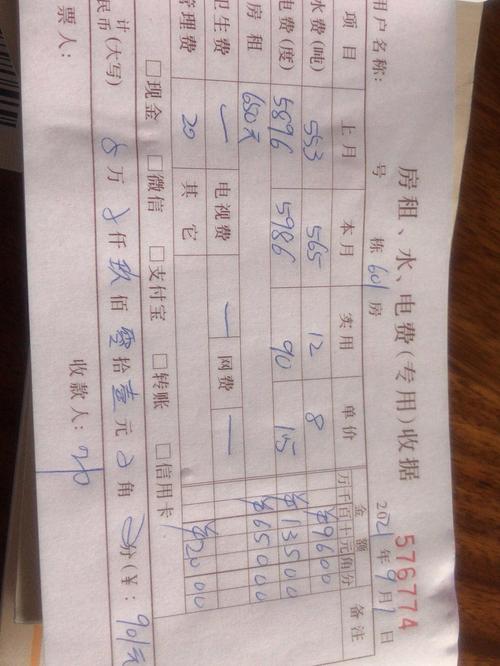 房租、水、电费(专用)收据 576774
用户名称: 号 栋 601 房 2021年9月1日
项目 上月 本月 实用 单价 金额 备注
万千百十元角分
水费(吨) 553 565 12 8 ¥9600
电费(度) 5896 5986 90 1.5 ¥13500
房租 650元 ¥65000
卫生费 — 电视费 — 网费 —
管理费 20 其它 ¥2000
□现金 □微信 □支付宝 □转账 □信用卡
计(大写)
民币 万 仟 玖 佰 零 拾 壹 元 角 分(¥: 901元
票人: 收款人: